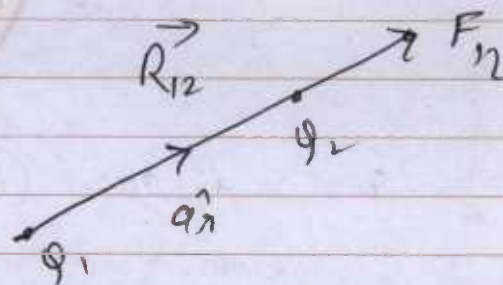 R₁₂ F₁₂
Q₂
âr
Q₁